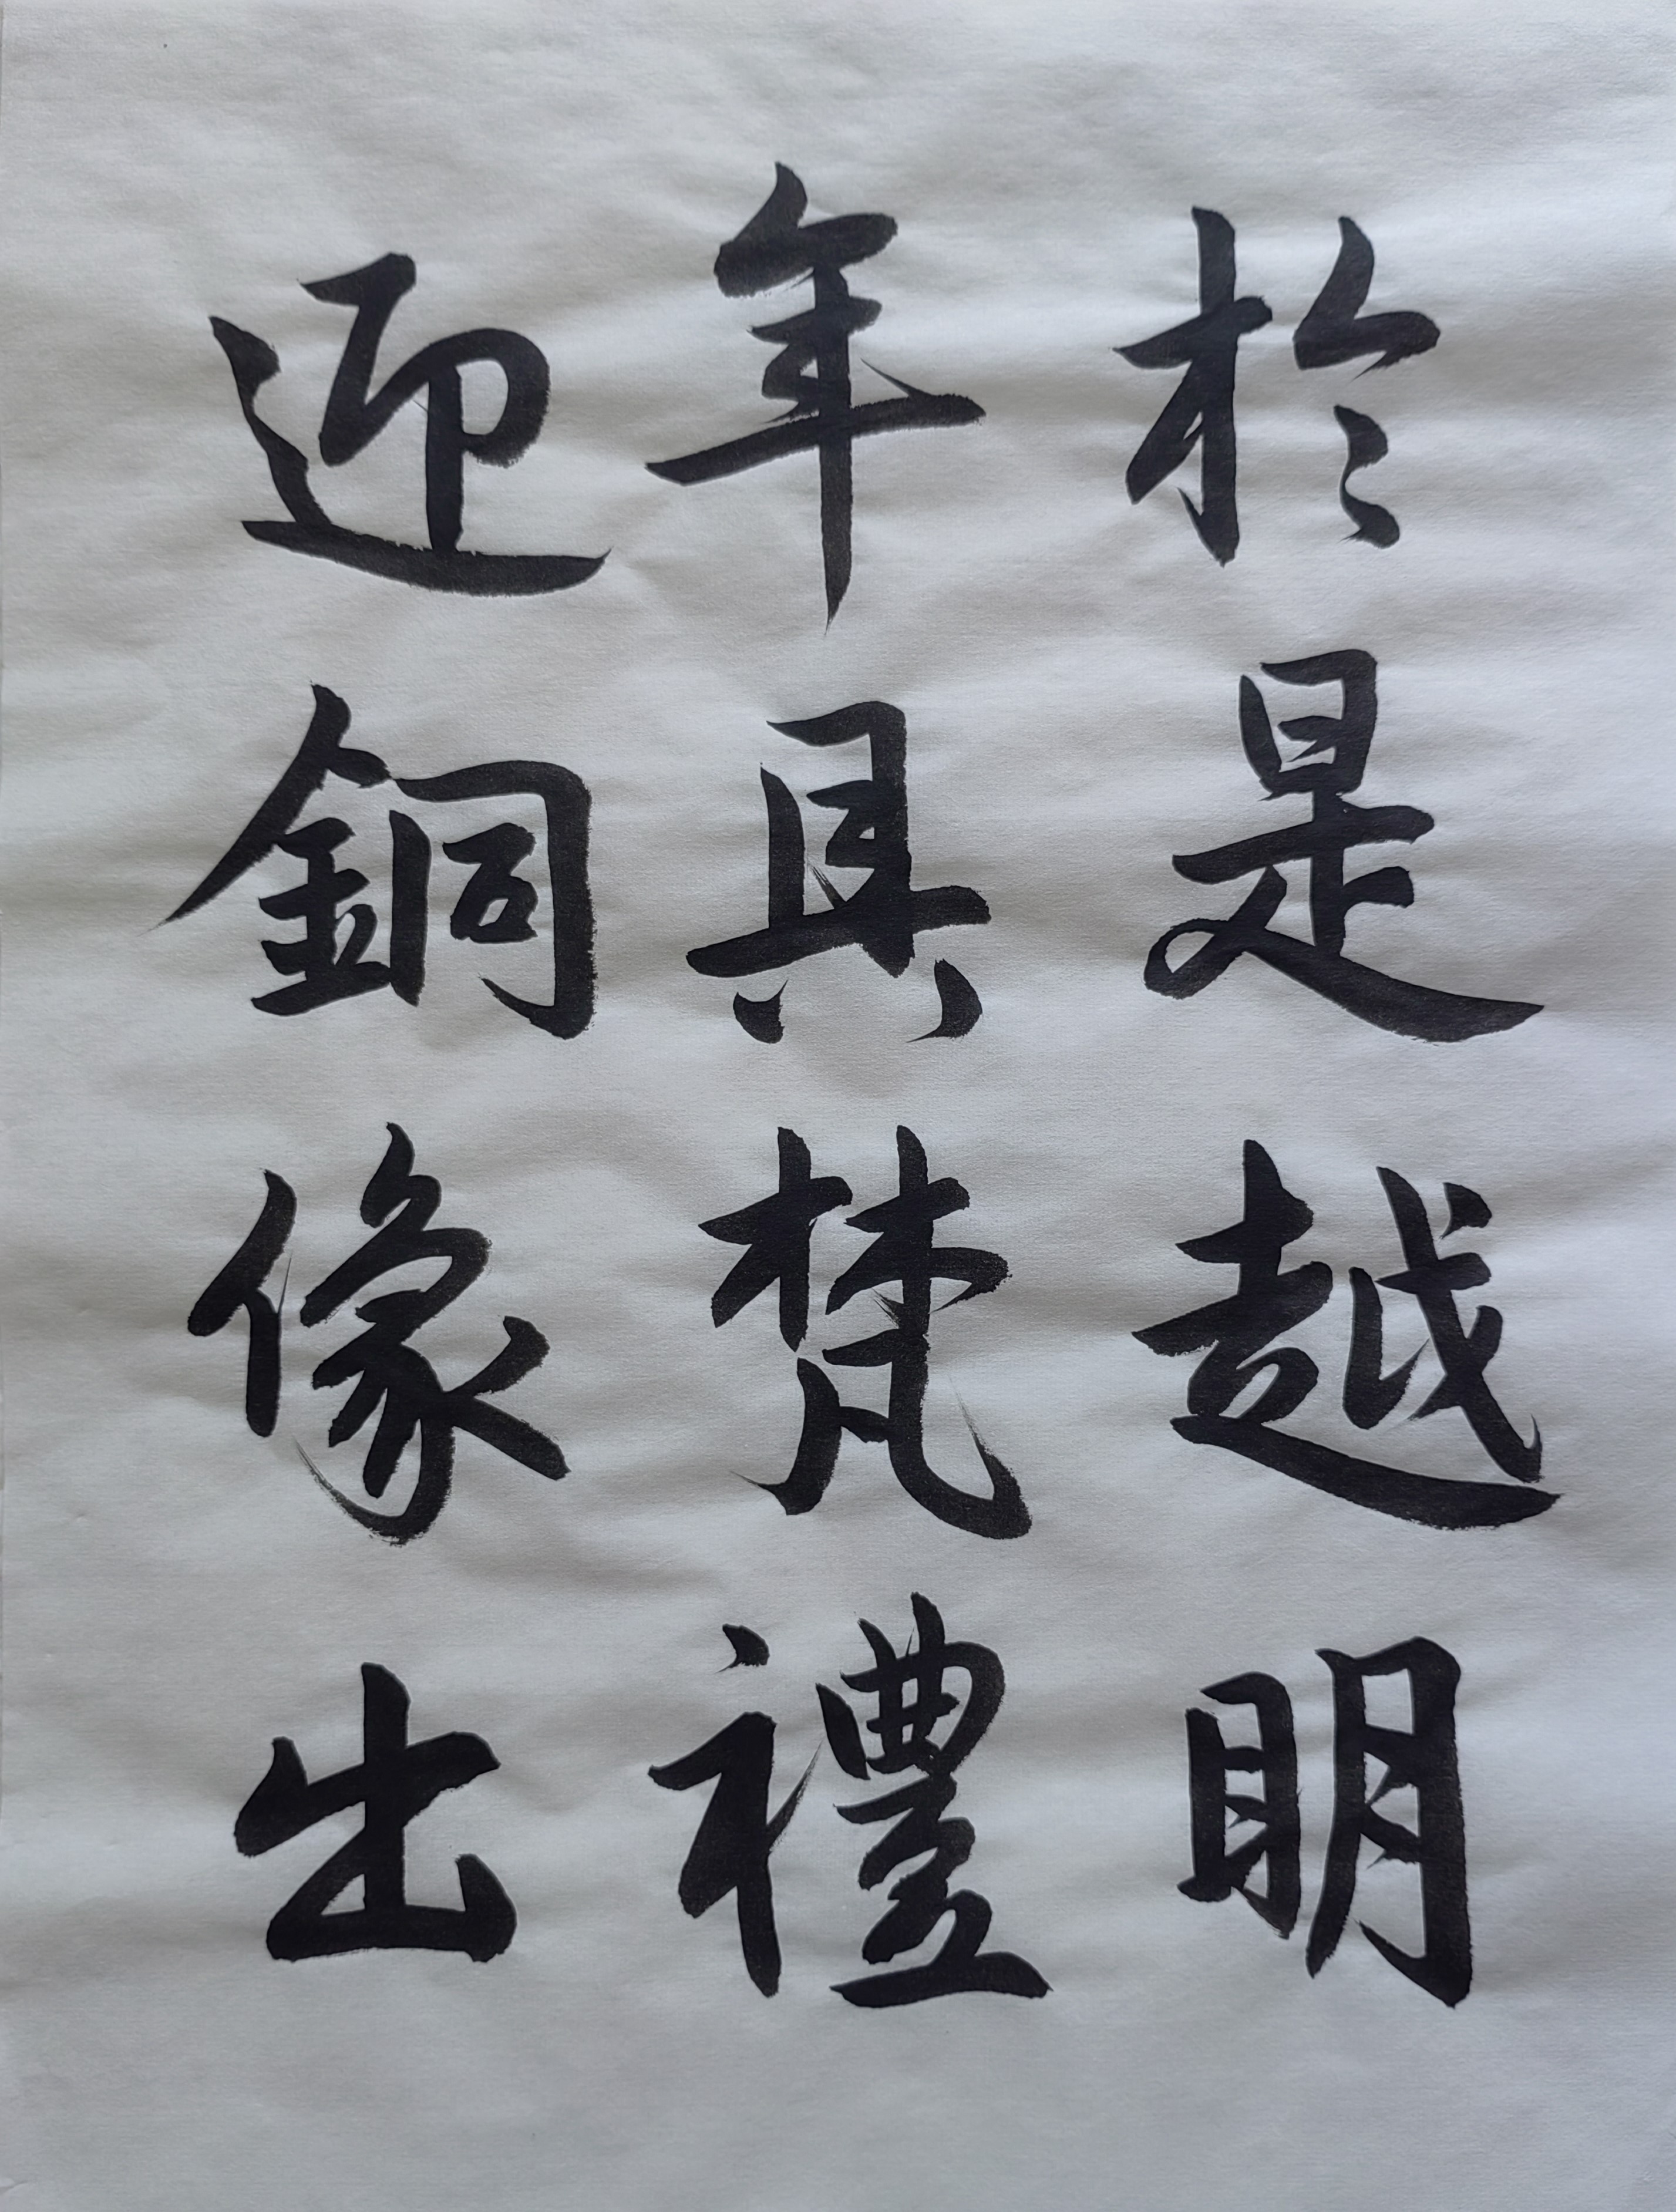 於是越明
年具梵禮
迎銅像出